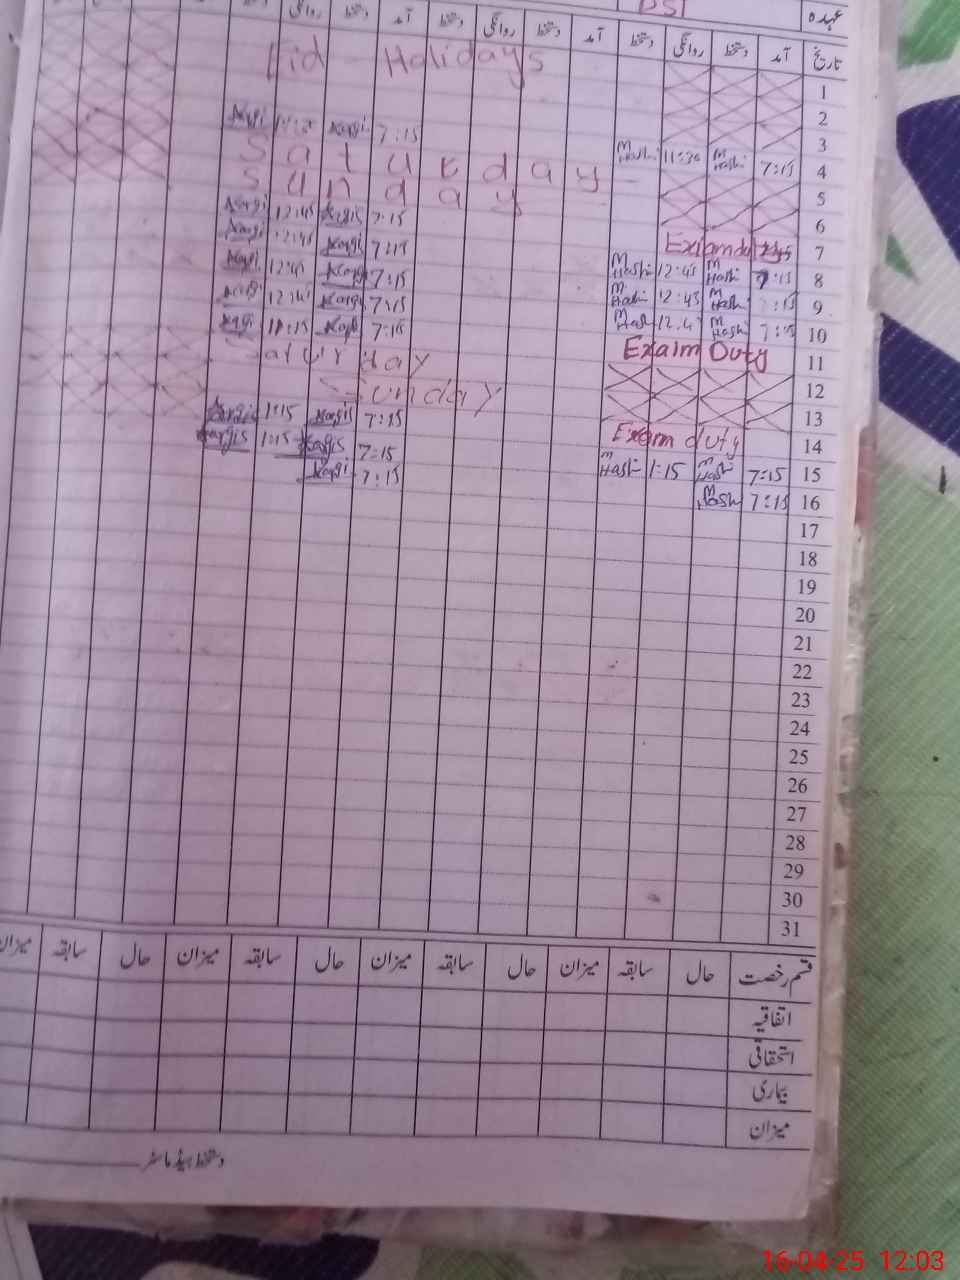 عہدہ PST
تاریخ آمد دستخط روانگی دستخط آمد دستخط روانگی دستخط آمد دستخط روانگی
1 Eid Holidays
2
3 7:15
4 7:15 M Hashi 11:30 M Hashi Saturday
5 Sunday
6 7:15 12:45
7 Exam duty 7:15 12:45
8 7:15 M Hashi 12:45 M Hashi 7:15 12:45
9 7:15 M Hashi 12:45 M Hashi 7:15 12:45
10 M Hashi 7:15 11:15
11 Exam Duty Saturday
12 Sunday
13 7:15 1:15
14 Exam duty 7:15 1:15
15 7:15 M Hashi 1:15 M Hashi 7:15
16 7:15 M Hashi
17
18
19
20
21
22
23
24
25
26
27
28
29
30
31
قسم رخصت حال سابقہ میزان حال سابقہ میزان حال سابقہ میزان حال سابقہ میزان
اتفاقیہ
استحقاقی
بیماری
میزان
دستخط ہیڈ ماسٹر
16-04-25 12:03